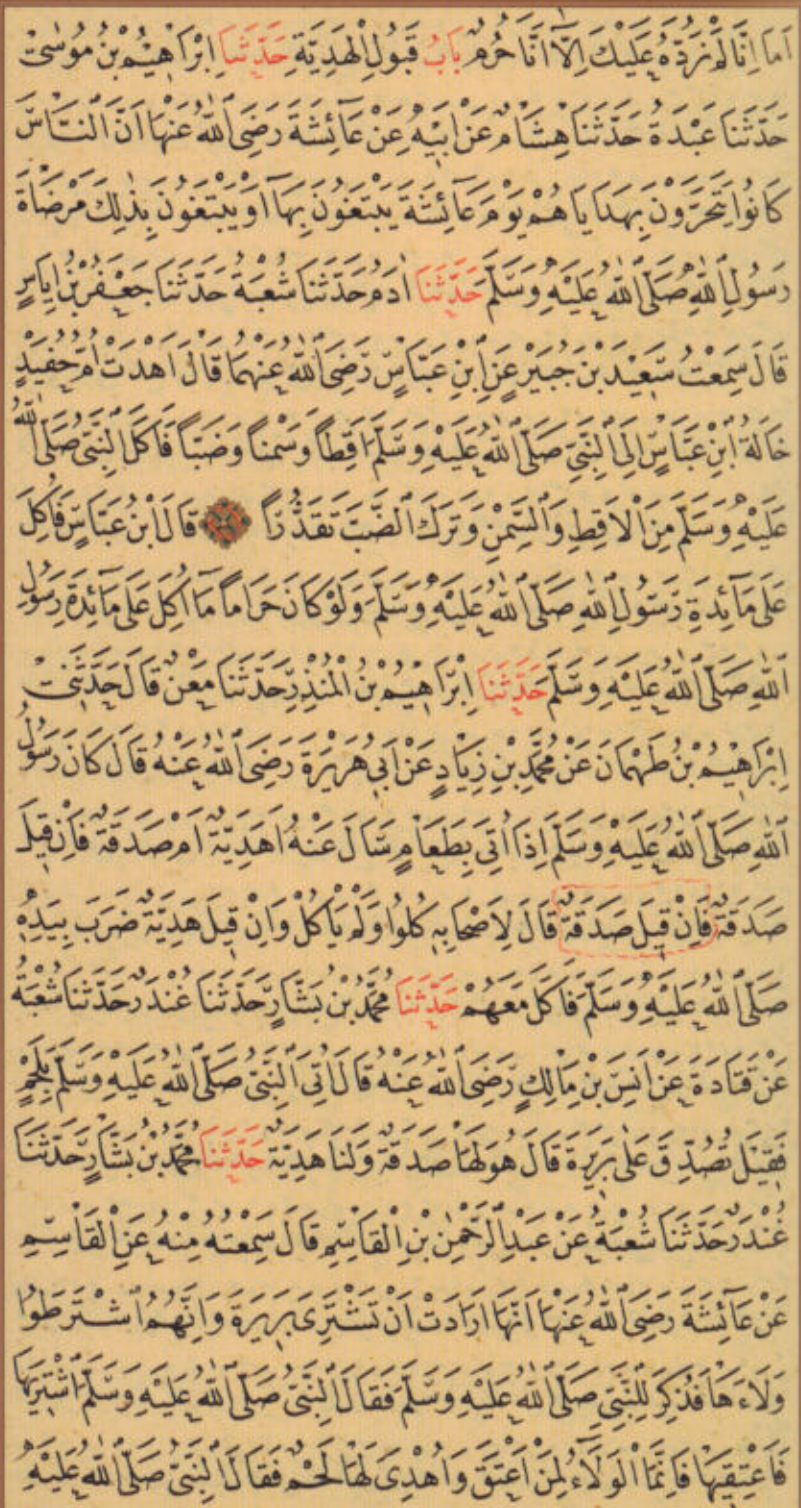 اَمَا اِنَّا لَمْ نَرُدَّهُ عَلَيْكَ اِلَّا اَنَّا حُرُمٌ بَابُ قَبُولِ الْهَدِيَّةِ حَدَّثَنَا اِبْرَاهِيْمُ بْنُ مُوسٰى
حَدَّثَنَا عَبْدَةُ حَدَّثَنَا هِشَامٌ عَنْ اَبِيْهِ عَنْ عَآئِشَةَ رَضِىَ اللّٰهُ عَنْهَا اَنَّ النَّاسَ
كَانُوا يَتَحَرَّوْنَ بِهَدَايَاهُمْ يَوْمَ عَآئِشَةَ يَبْتَغُونَ بِهَآ اَوْ يَبْتَغُونَ بِذٰلِكَ مَرْضَاةَ
رَسُولِ اللّٰهِ صَلَّى اللّٰهُ عَلَيْهِ وَسَلَّمَ حَدَّثَنَا اٰدَمُ حَدَّثَنَا شُعْبَةُ حَدَّثَنَا جَعْفَرُ بْنُ اِيَاسٍ
قَالَ سَمِعْتُ سَعِيْدَ بْنَ جُبَيْرٍ عَنِ ابْنِ عَبَّاسٍ رَضِىَ اللّٰهُ عَنْهُمَا قَالَ اَهْدَتْ اُمُّ حُفَيْدٍ
خَالَةُ ابْنِ عَبَّاسٍ اِلَى النَّبِىِّ صَلَّى اللّٰهُ عَلَيْهِ وَسَلَّمَ اَقِطاً وَسَمْناً وَضَبّاً فَاَكَلَ النَّبِىُّ صَلَّى اللّٰهُ
عَلَيْهِ وَسَلَّمَ مِنَ الْاَقِطِ وَالسَّمْنِ وَتَرَكَ الضَّبَّ تَقَذُّرًا قَالَ ابْنُ عَبَّاسٍ فَاُكِلَ
عَلٰى مَآئِدَةِ رَسُولِ اللّٰهِ صَلَّى اللّٰهُ عَلَيْهِ وَسَلَّمَ وَلَوْ كَانَ حَرَاماً مَآ اُكِلَ عَلٰى مَآئِدَةِ رَسُولِ
اللّٰهِ صَلَّى اللّٰهُ عَلَيْهِ وَسَلَّمَ حَدَّثَنَا اِبْرَاهِيْمُ بْنُ الْمُنْذِرِ حَدَّثَنَا مَعْنٌ قَالَ حَدَّثَنِى
اِبْرَاهِيْمُ بْنُ طَهْمَانَ عَنْ مُحَمَّدِ بْنِ زِيَادٍ عَنْ اَبِى هُرَيْرَةَ رَضِىَ اللّٰهُ عَنْهُ قَالَ كَانَ رَسُولُ
اللّٰهِ صَلَّى اللّٰهُ عَلَيْهِ وَسَلَّمَ اِذَا اُتِىَ بِطَعَامٍ سَاَلَ عَنْهُ اَهَدِيَّةٌ اَمْ صَدَقَةٌ فَاِنْ قِيلَ
صَدَقَةٌ فَاِنْ قِيلَ صَدَقَةٌ قَالَ لِاَصْحَابِهِ كُلُوا وَلَمْ يَاْكُلْ وَاِنْ قِيلَ هَدِيَّةٌ ضَرَبَ بِيَدِهِ
صَلَّى اللّٰهُ عَلَيْهِ وَسَلَّمَ فَاَكَلَ مَعَهُمْ حَدَّثَنَا مُحَمَّدُ بْنُ بَشَّارٍ حَدَّثَنَا غُنْدَرٌ حَدَّثَنَا شُعْبَةُ
عَنْ قَتَادَةَ عَنْ اَنَسِ بْنِ مَالِكٍ رَضِىَ اللّٰهُ عَنْهُ قَالَ اُتِىَ النَّبِىُّ صَلَّى اللّٰهُ عَلَيْهِ وَسَلَّمَ بِلَحْمٍ
فَقِيْلَ تُصُدِّقَ عَلٰى بَرِيرَةَ قَالَ هُوَ لَهَا صَدَقَةٌ وَلَنَا هَدِيَّةٌ حَدَّثَنَا مُحَمَّدُ بْنُ بَشَّارٍ حَدَّثَنَا
غُنْدَرٌ حَدَّثَنَا شُعْبَةُ عَنْ عَبْدِ الرَّحْمٰنِ بْنِ الْقَاسِمِ قَالَ سَمِعْتُهُ مِنْهُ عَنِ الْقَاسِمِ
عَنْ عَآئِشَةَ رَضِىَ اللّٰهُ عَنْهَا اَنَّهَا اَرَادَتْ اَنْ تَشْتَرِىَ بَرِيرَةَ وَاَنَّهُمُ اشْتَرَطُوا
وَلَاءَهَا فَذُكِرَ لِلنَّبِىِّ صَلَّى اللّٰهُ عَلَيْهِ وَسَلَّمَ فَقَالَ النَّبِىُّ صَلَّى اللّٰهُ عَلَيْهِ وَسَلَّمَ اشْتَرِيهَا
فَاَعْتِقِيهَا فَاِنَّمَا الْوَلَآءُ لِمَنْ اَعْتَقَ وَاُهْدِىَ لَهَا لَحْمٌ فَقَالَ النَّبِىُّ صَلَّى اللّٰهُ عَلَيْهِ